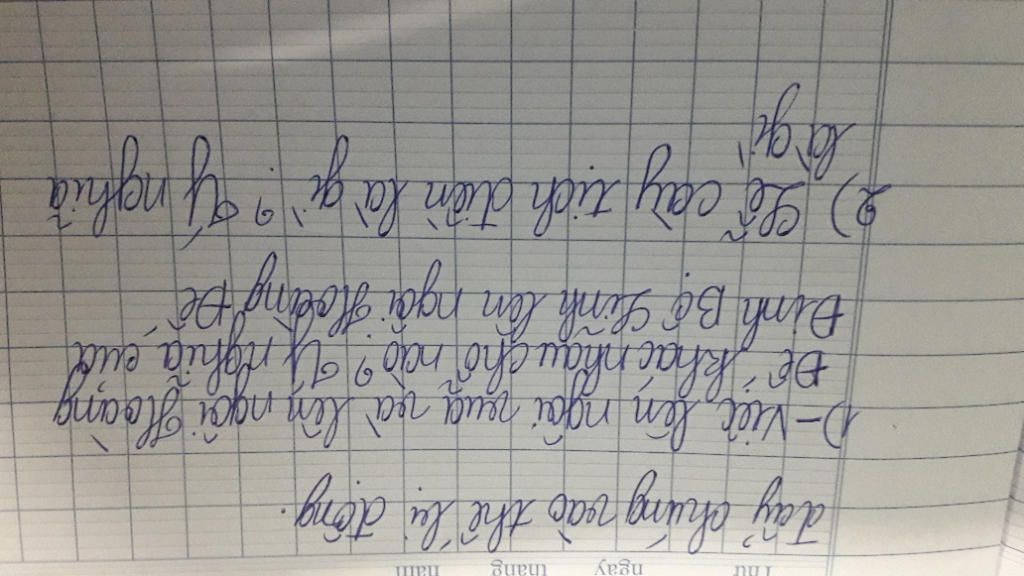 Thứ ngày tháng năm
đẩy chúng vào thế bị động.
1) - Việc lên ngôi vua và lên ngôi Hoàng
Đế khác nhau chỗ nào? Ý nghĩa của
Đinh Bộ Lĩnh lên ngôi Hoàng Đế
2) Lễ cày tịch điền là gì? Ý nghĩa
là gì